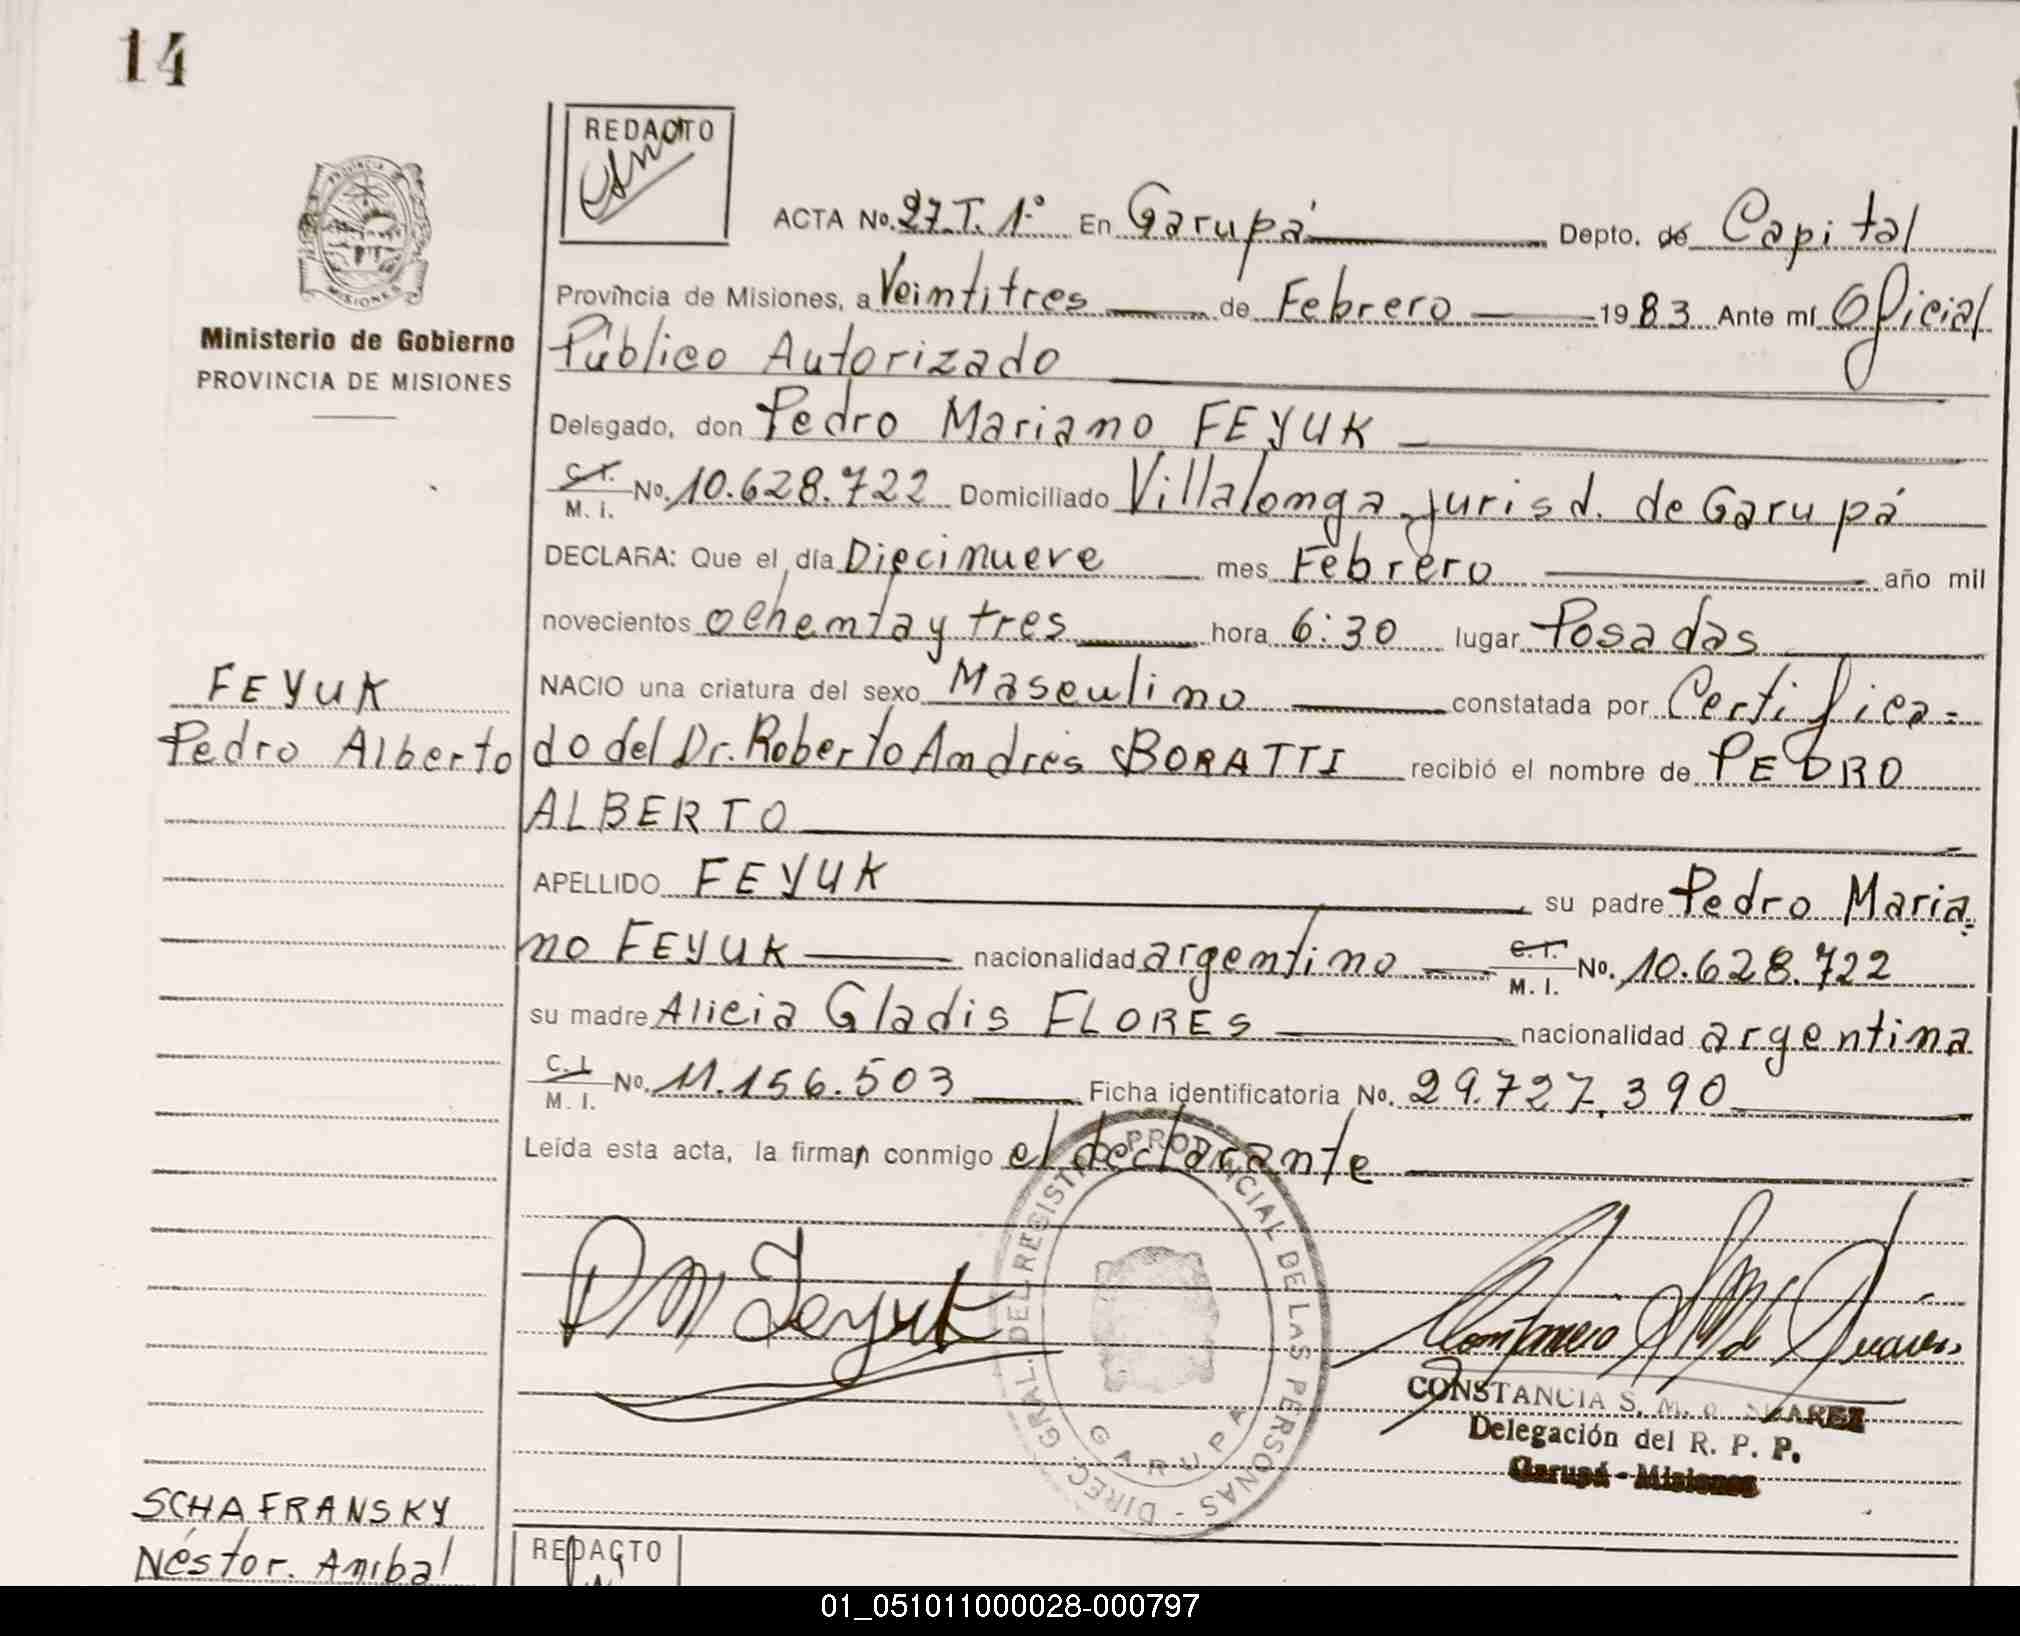 14
REDACTO
PROVINCIA
MISIONES
Ministerio de Gobierno
PROVINCIA DE MISIONES
ACTA No. 27.T.1º En Garupá Depto. de Capital
Provincia de Misiones, a Veintitres de Febrero 1983 Ante mí Oficial
Público Autorizado
Delegado, don Pedro Mariano FEYUK
C.I. M. I. No. 10.628.722 Domiciliado Villalonga jurisd. de Garupá
DECLARA: Que el día Diecinueve mes Febrero año mil
novecientos ochenta y tres hora 6:30 lugar Posadas
NACIO una criatura del sexo Masculino constatada por Certifica=
do del Dr. Roberto Andrés BORATTI recibió el nombre de PEDRO
ALBERTO
FEYUK
Pedro Alberto
APELLIDO FEYUK su padre Pedro Maria=
no FEYUK nacionalidad argentino C.I. M. I. No. 10.628.722
su madre Alicia Gladis FLORES nacionalidad argentina
C.I. M. I. No. 11.156.503 Ficha identificatoria No. 29.727.390
Leída esta acta, la firman conmigo el declarante
PM Feyuk
DIREC. GRAL. DEL REGISTRO PROVINCIAL DE LAS PERSONAS -
GARUPA
CONSTANCIA S. M. d. SUAREZ
Delegación del R. P. P.
Garupá - Misiones
SCHAFRANSKY
Néstor. Anibal
REDACTO
01_051011000028-000797